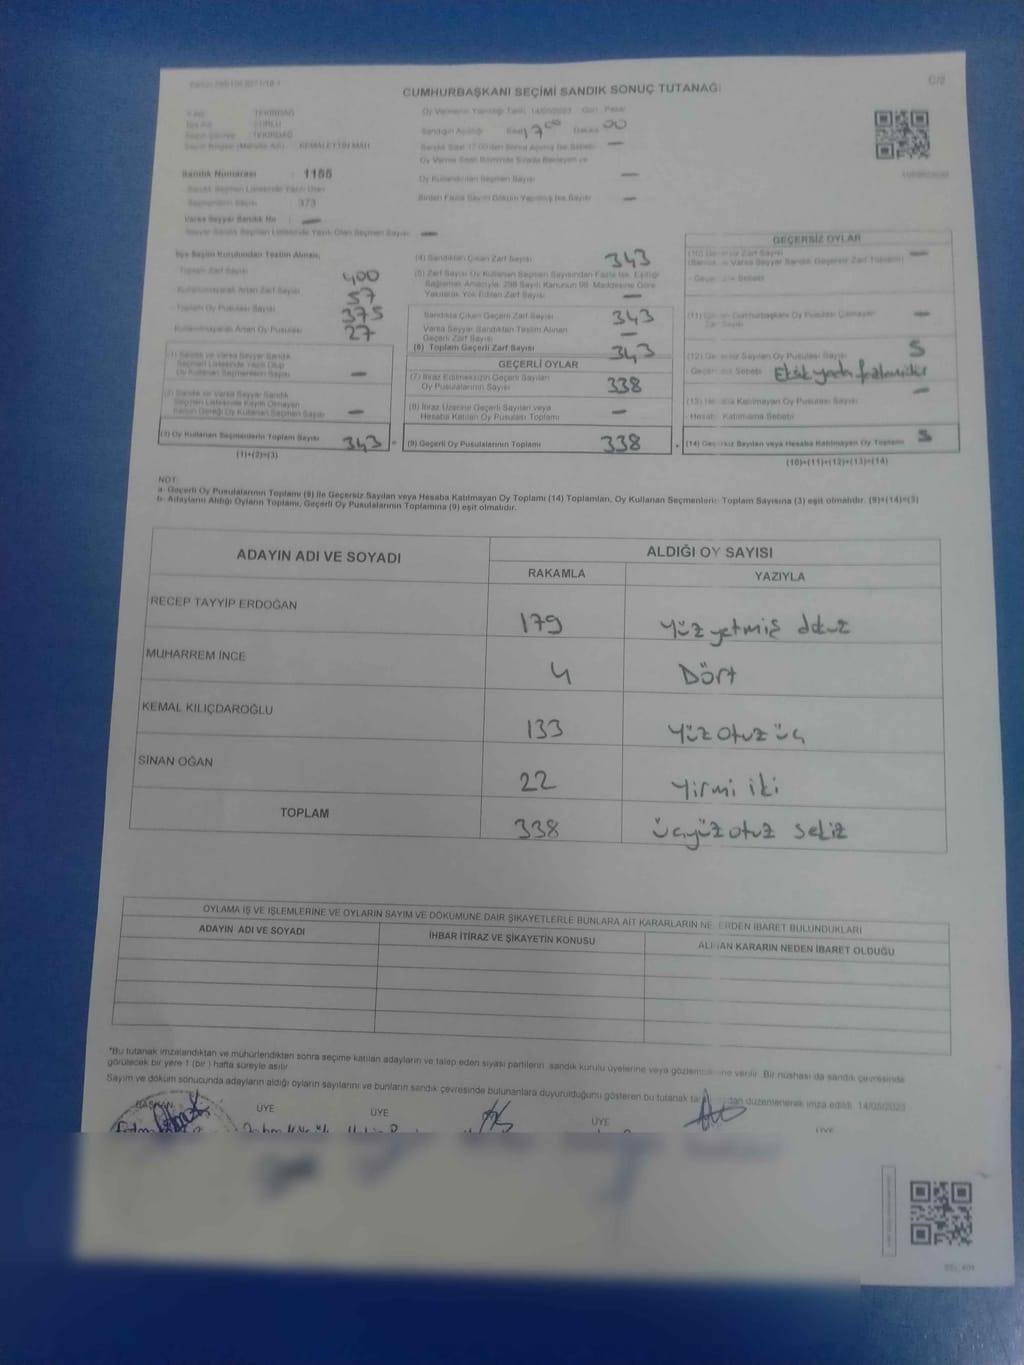 CUMHURBAŞKANI SEÇİMİ SANDIK SONUÇ TUTANAĞI
C/2
Oy Vermenin Yapıldığı Tarih: 14/05/2023 Gün: Pazar
Sandığın Açıldığı Saat 17 00 Dakika 00
TEKİRDAĞ
ÇORLU
TEKİRDAĞ
KEMALETTİN MAH.
Sandık Numarası : 1155
Oy Kullandırılan Seçmen Sayısı —
373
Birden Fazla Sayım Döküm Yapılmış İse Sayısı —
Varsa Seyyar Sandık No : —
İlçe Seçim Kurulundan Teslim Alınan;
Toplam Zarf Sayısı 400
Kullanılmayarak Artan Zarf Sayısı 57
Toplam Oy Pusulası Sayısı 375
Kullanılmayarak Artan Oy Pusulası 27
(1) Sandık ve Varsa Seyyar Sandık
Seçmen Listesinde Yazılı Olup
Oy Kullanan Seçmenlerin Sayısı —
(2) Sandık ve Varsa Seyyar Sandık
Seçmen Listesinde Kaydı Olmayan
—
(3) Oy Kullanan Seçmenlerin Toplam Sayısı 343 =
(1)+(2)=(3)
(4) Sandıktan Çıkan Zarf Sayısı 343
(5) Zarf Sayısı Oy Kullanan Seçmen Sayısından Fazla İse, Eşitliği
Sağlamak Amacıyla, 298 Sayılı Kanunun 98. Maddesine Göre
Yakılarak Yok Edilen Zarf Sayısı —
Sandıkta Çıkan Geçerli Zarf Sayısı 343
Varsa Seyyar Sandıktan Teslim Alınan
Geçerli Zarf Sayısı —
(6) Toplam Geçerli Zarf Sayısı 343
GEÇERLİ OYLAR
(7) İtiraz Edilmeksizin Geçerli Sayılan
Oy Pusulalarının Sayısı 338
(8) İtiraz Üzerine Geçerli Sayılan veya
Hesaba Katılan Oy Pusulası Toplamı —
(9) Geçerli Oy Pusulalarının Toplamı 338 +
GEÇERSİZ OYLAR
—
(12) Geçersiz Sayılan Oy Pusulası Sayısı 5
(13) Hesaba Katılmayan Oy Pusulası Sayısı —
Hesaba Katılmama Sebebi
(14) Geçersiz Sayılan veya Hesaba Katılmayan Oy Toplamı 5
(10)+(11)+(12)+(13)=(14)
NOT:
a- Geçerli Oy Pusulalarının Toplamı (9) ile Geçersiz Sayılan veya Hesaba Katılmayan Oy Toplamı (14) Toplamları, Oy Kullanan Seçmenlerin Toplam Sayısına (3) eşit olmalıdır. (9)+(14)=(3)
b- Adayların Aldığı Oyların Toplamı, Geçerli Oy Pusulalarının Toplamına (9) eşit olmalıdır.
ADAYIN ADI VE SOYADI
ALDIĞI OY SAYISI
RAKAMLA
YAZIYLA
RECEP TAYYİP ERDOĞAN 179 Yüz yetmiş dokuz
MUHARREM İNCE 4 Dört
KEMAL KILIÇDAROĞLU 133 Yüz otuz üç
SİNAN OĞAN 22 Yirmi iki
TOPLAM 338 üçyüz otuz sekiz
OYLAMA İŞ VE İŞLEMLERİNE VE OYLARIN SAYIM VE DÖKÜMÜNE DAİR ŞİKAYETLERLE BUNLARA AİT KARARLARIN NELERDEN İBARET BULUNDUKLARI
ADAYIN ADI VE SOYADI
İHBAR İTİRAZ VE ŞİKAYETİN KONUSU
ALINAN KARARIN NEDEN İBARET OLDUĞU
*Bu tutanak imzalandıktan ve mühürlendikten sonra seçime katılan adayların ve talep eden siyasi partilerin sandık kurulu üyelerine veya gözlemcilerine verilir. Bir nüshası da sandık çevresinde
görülecek bir yere 1 (bir) hafta süreyle asılır.
Sayım ve döküm sonucunda adayların aldığı oyların sayılarını ve bunların sandık çevresinde bulunanlara duyurulduğunu gösteren bu tutanak tarafımızdan düzenlenerek imza edildi. 14/05/2023
BAŞKAN ÜYE ÜYE ÜYE ÜYE